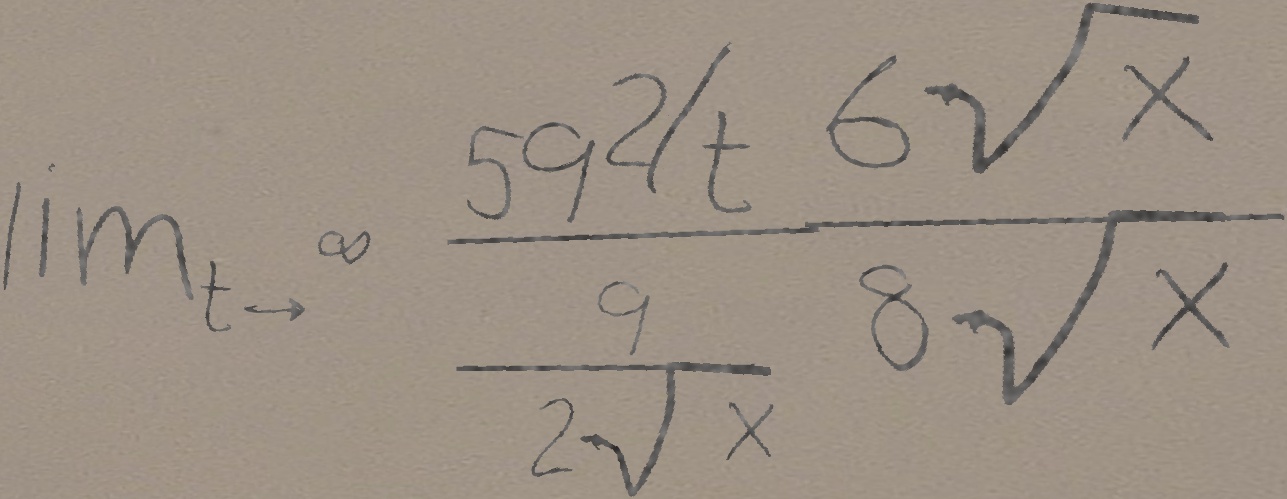 \lim_{t \to \infty} \frac{59^{2/t} 6\sqrt{x}}{\frac{9}{2\sqrt{x}} 8\sqrt{x}}